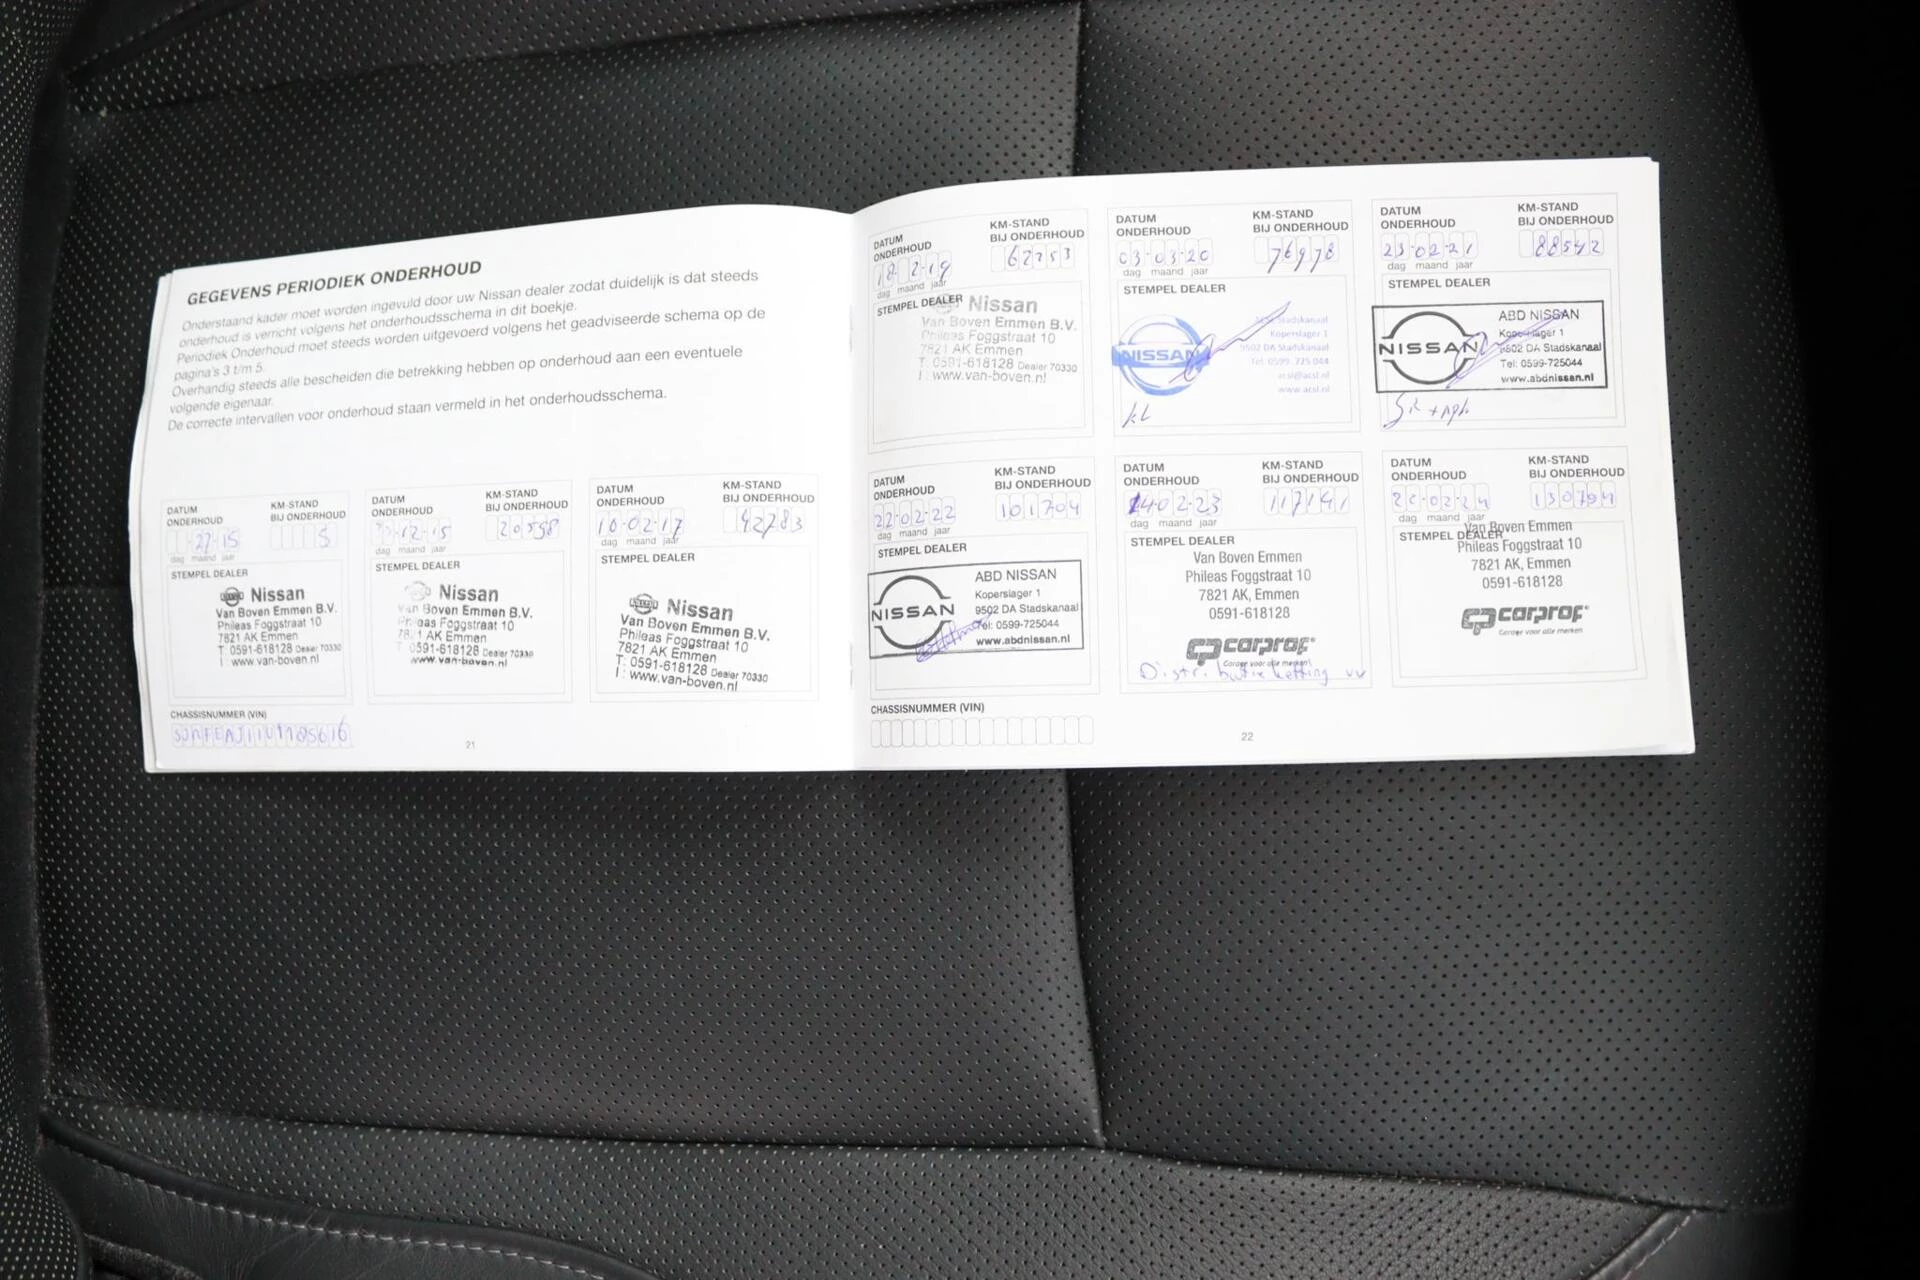 GEGEVENS PERIODIEK ONDERHOUD
Onderstaand kader moet worden ingevuld door uw Nissan dealer zodat duidelijk is dat steeds
onderhoud is verricht volgens het onderhoudsschema in dit boekje.
Periodiek Onderhoud moet steeds worden uitgevoerd volgens het geadviseerde schema op de
pagina's 3 t/m 5.
Overhandig steeds alle bescheiden die betrekking hebben op onderhoud aan een eventuele
volgende eigenaar.
De correcte intervallen voor onderhoud staan vermeld in het onderhoudsschema.
DATUM
ONDERHOUD
KM-STAND
BIJ ONDERHOUD
27-15
5
dag maand jaar
STEMPEL DEALER
Nissan
Van Boven Emmen B.V.
Phileas Foggstraat 10
7821 AK Emmen
T: 0591-618128 Dealer 70330
I : www.van-boven.nl
DATUM
ONDERHOUD
KM-STAND
BIJ ONDERHOUD
12-15
20598
dag maand jaar
STEMPEL DEALER
Nissan
Van Boven Emmen B.V.
Phileas Foggstraat 10
7821 AK Emmen
T: 0591-618128 Dealer 70330
www.van-boven.nl
DATUM
ONDERHOUD
KM-STAND
BIJ ONDERHOUD
10-02-17
42783
dag maand jaar
STEMPEL DEALER
Nissan
Van Boven Emmen B.V.
Phileas Foggstraat 10
7821 AK Emmen
T: 0591-618128 Dealer 70330
I : www.van-boven.nl
CHASSISNUMMER (VIN)
21
DATUM
ONDERHOUD
KM-STAND
BIJ ONDERHOUD
18 2-19
62253
dag maand jaar
STEMPEL DEALER
Nissan
Van Boven Emmen B.V.
Phileas Foggstraat 10
7821 AK Emmen
T: 0591-618128 Dealer 70330
I : www.van-boven.nl
DATUM
ONDERHOUD
KM-STAND
BIJ ONDERHOUD
03-03-20
76978
dag maand jaar
STEMPEL DEALER
NISSAN
Stadskanaal
Koperslager 1
9502 DA Stadskanaal
Tel. 0599-725 044
acsl@acsl.nl
www.acsl.nl
DATUM
ONDERHOUD
KM-STAND
BIJ ONDERHOUD
23-02-21
88542
dag maand jaar
STEMPEL DEALER
NISSAN
ABD NISSAN
Koperslager 1
9502 DA Stadskanaal
Tel: 0599-725044
www.abdnissan.nl
DATUM
ONDERHOUD
KM-STAND
BIJ ONDERHOUD
22-02-22
101704
dag maand jaar
STEMPEL DEALER
NISSAN
ABD NISSAN
Koperslager 1
9502 DA Stadskanaal
Tel: 0599-725044
www.abdnissan.nl
DATUM
ONDERHOUD
KM-STAND
BIJ ONDERHOUD
1402-23
117141
dag maand jaar
STEMPEL DEALER
Van Boven Emmen
Phileas Foggstraat 10
7821 AK, Emmen
0591-618128
carprof
Garage voor alle merken
Distributie ketting vv
DATUM
ONDERHOUD
KM-STAND
BIJ ONDERHOUD
02-24
130794
dag maand jaar
STEMPEL DEALER
Van Boven Emmen
Phileas Foggstraat 10
7821 AK, Emmen
0591-618128
carprof
Garage voor alle merken
CHASSISNUMMER (VIN)
22